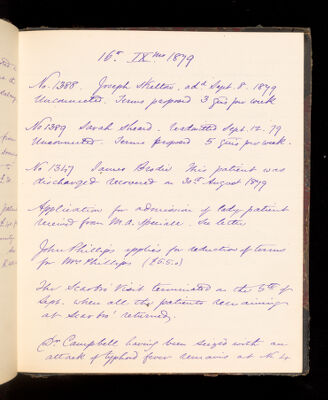 16th IXmo 1879
No. 1388. Joseph Skelton. adm Sept. 8. 1879
Unconnected. Terms proposed 3 gns per week
No 1389 Sarah Sheard. Sept. 12. 79
Unconnected. Terms proposed 5 gns per week.
No 1347 James Brodie This patient was
discharged recovered on 30th August 1879
Application for admission of lady patient
received from M.A. See letter
John Phillips applies for reduction of terms
for Mrs Phillips (£5.5.0)
The Scarbro' Visit terminated on the 5th of
Sept. when all the patients then remaining
at Scarbro' returned.
Dr Campbell having been seized with an
attack of typhoid fever remains at No